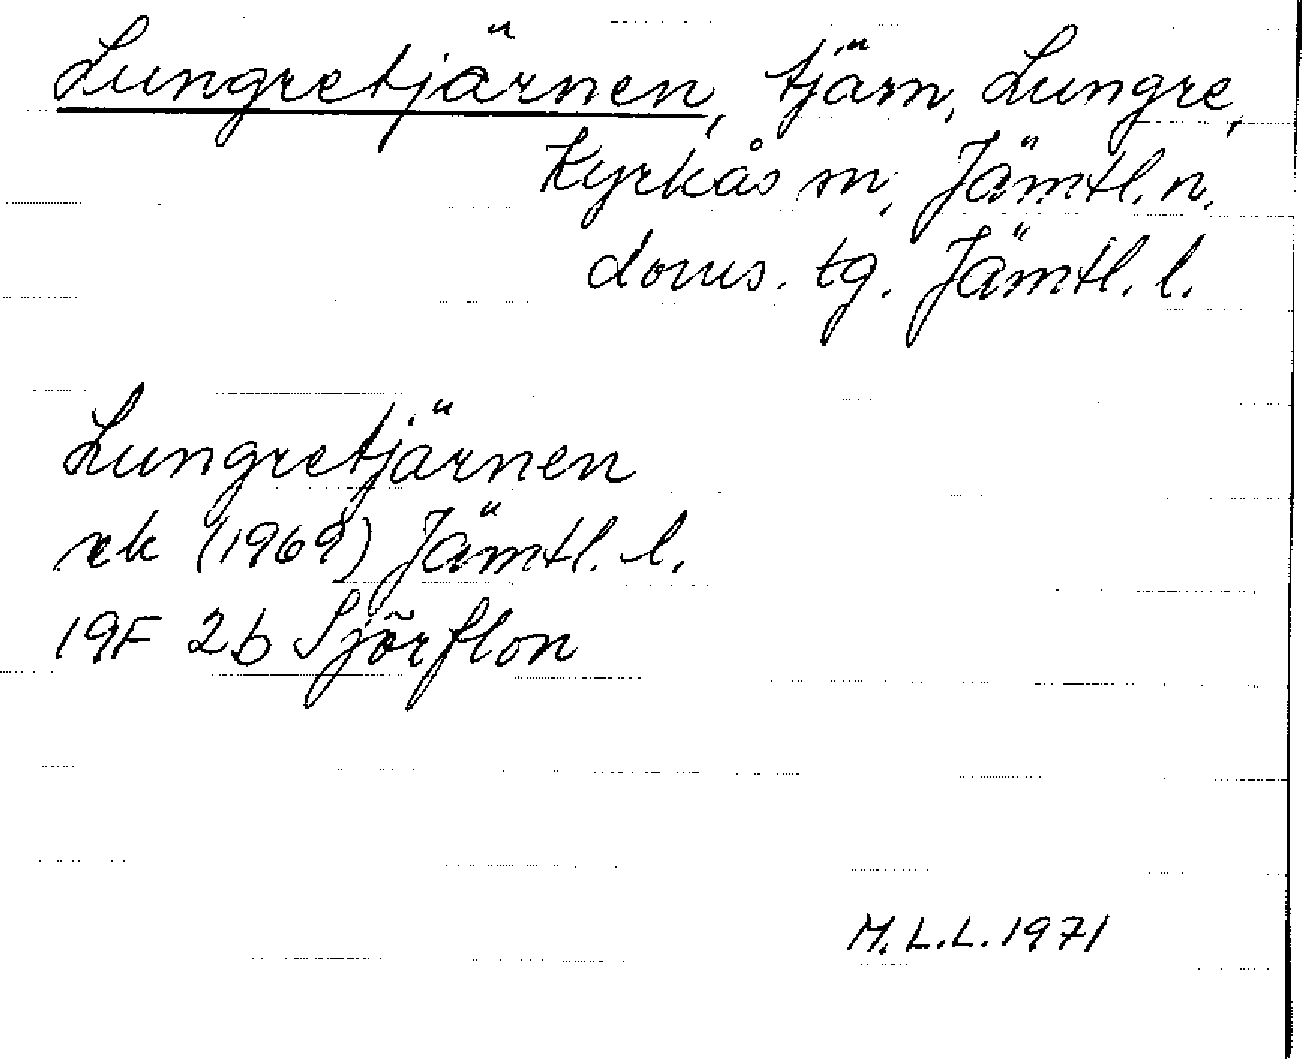 Lungretjärnen, tjärn, Lungre,
Kyrkås sn, Jämtl. n.
doms. tg. Jämtl. l.
Lungretjärnen
rek (1969) Jämtl. l.
19F 2b Sjörflon
M.L.L. 1971